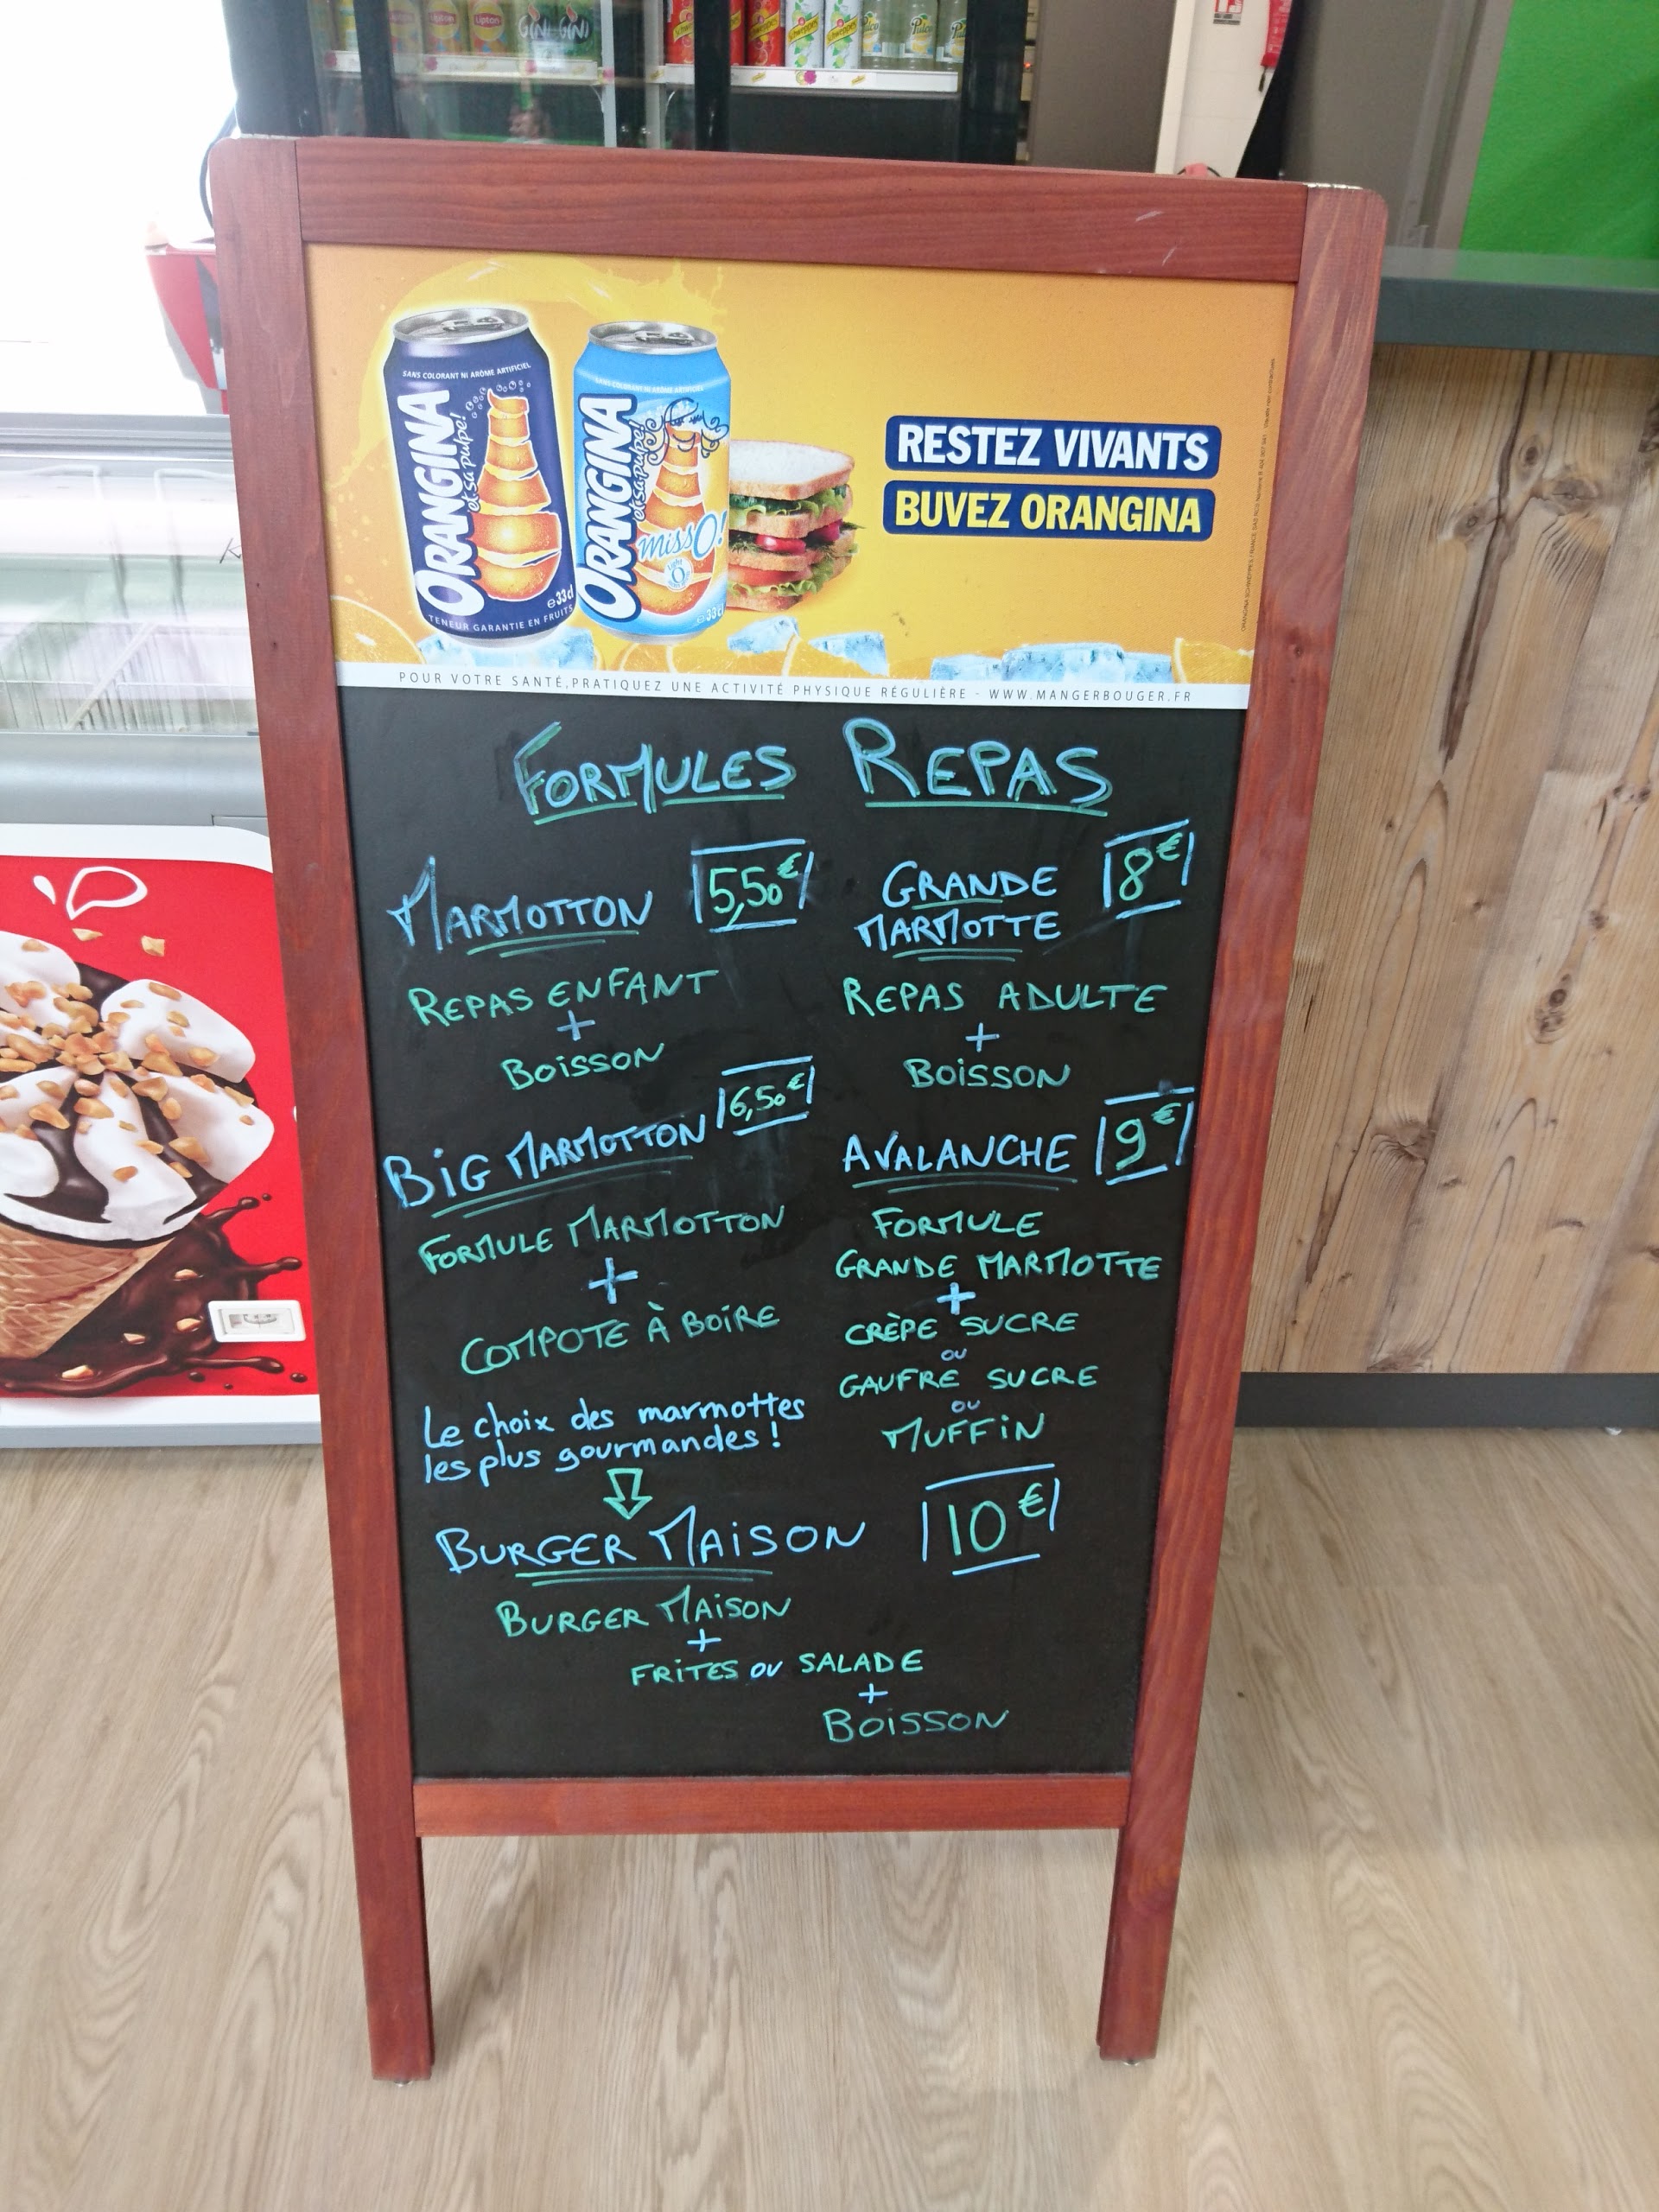 Lipton
Lipton
GINI
GINI
Schweppes
Schweppes
Schweppes
Schweppes
Pulco
SANS COLORANT NI ARÔME ARTIFICIEL
ORANGINA
et sa pulpe!
e33cl
TENEUR GARANTIE EN FRUITS
SANS COLORANT NI ARÔME ARTIFICIEL
ORANGINA
et sa pulpe!
missO!
e33cl
RESTEZ VIVANTS
BUVEZ ORANGINA
POUR VOTRE SANTÉ, PRATIQUEZ UNE ACTIVITÉ PHYSIQUE RÉGULIÈRE - WWW.MANGERBOUGER.FR
FORMULES REPAS
MARMOTTON 5,50€
REPAS ENFANT
+
BOISSON
BIG MARMOTTON 6,50€
FORMULE MARMOTTON
+
COMPOTE À BOIRE
GRANDE MARMOTTE 8€
REPAS ADULTE
+
BOISSON
AVALANCHE 9€
FORMULE
GRANDE MARMOTTE
+
CRÈPE SUCRE
ou
GAUFRE SUCRE
ou
MUFFIN
Le choix des marmottes
les plus gourmandes !
BURGER MAISON 10€
BURGER MAISON
+
FRITES OU SALADE
+
BOISSON